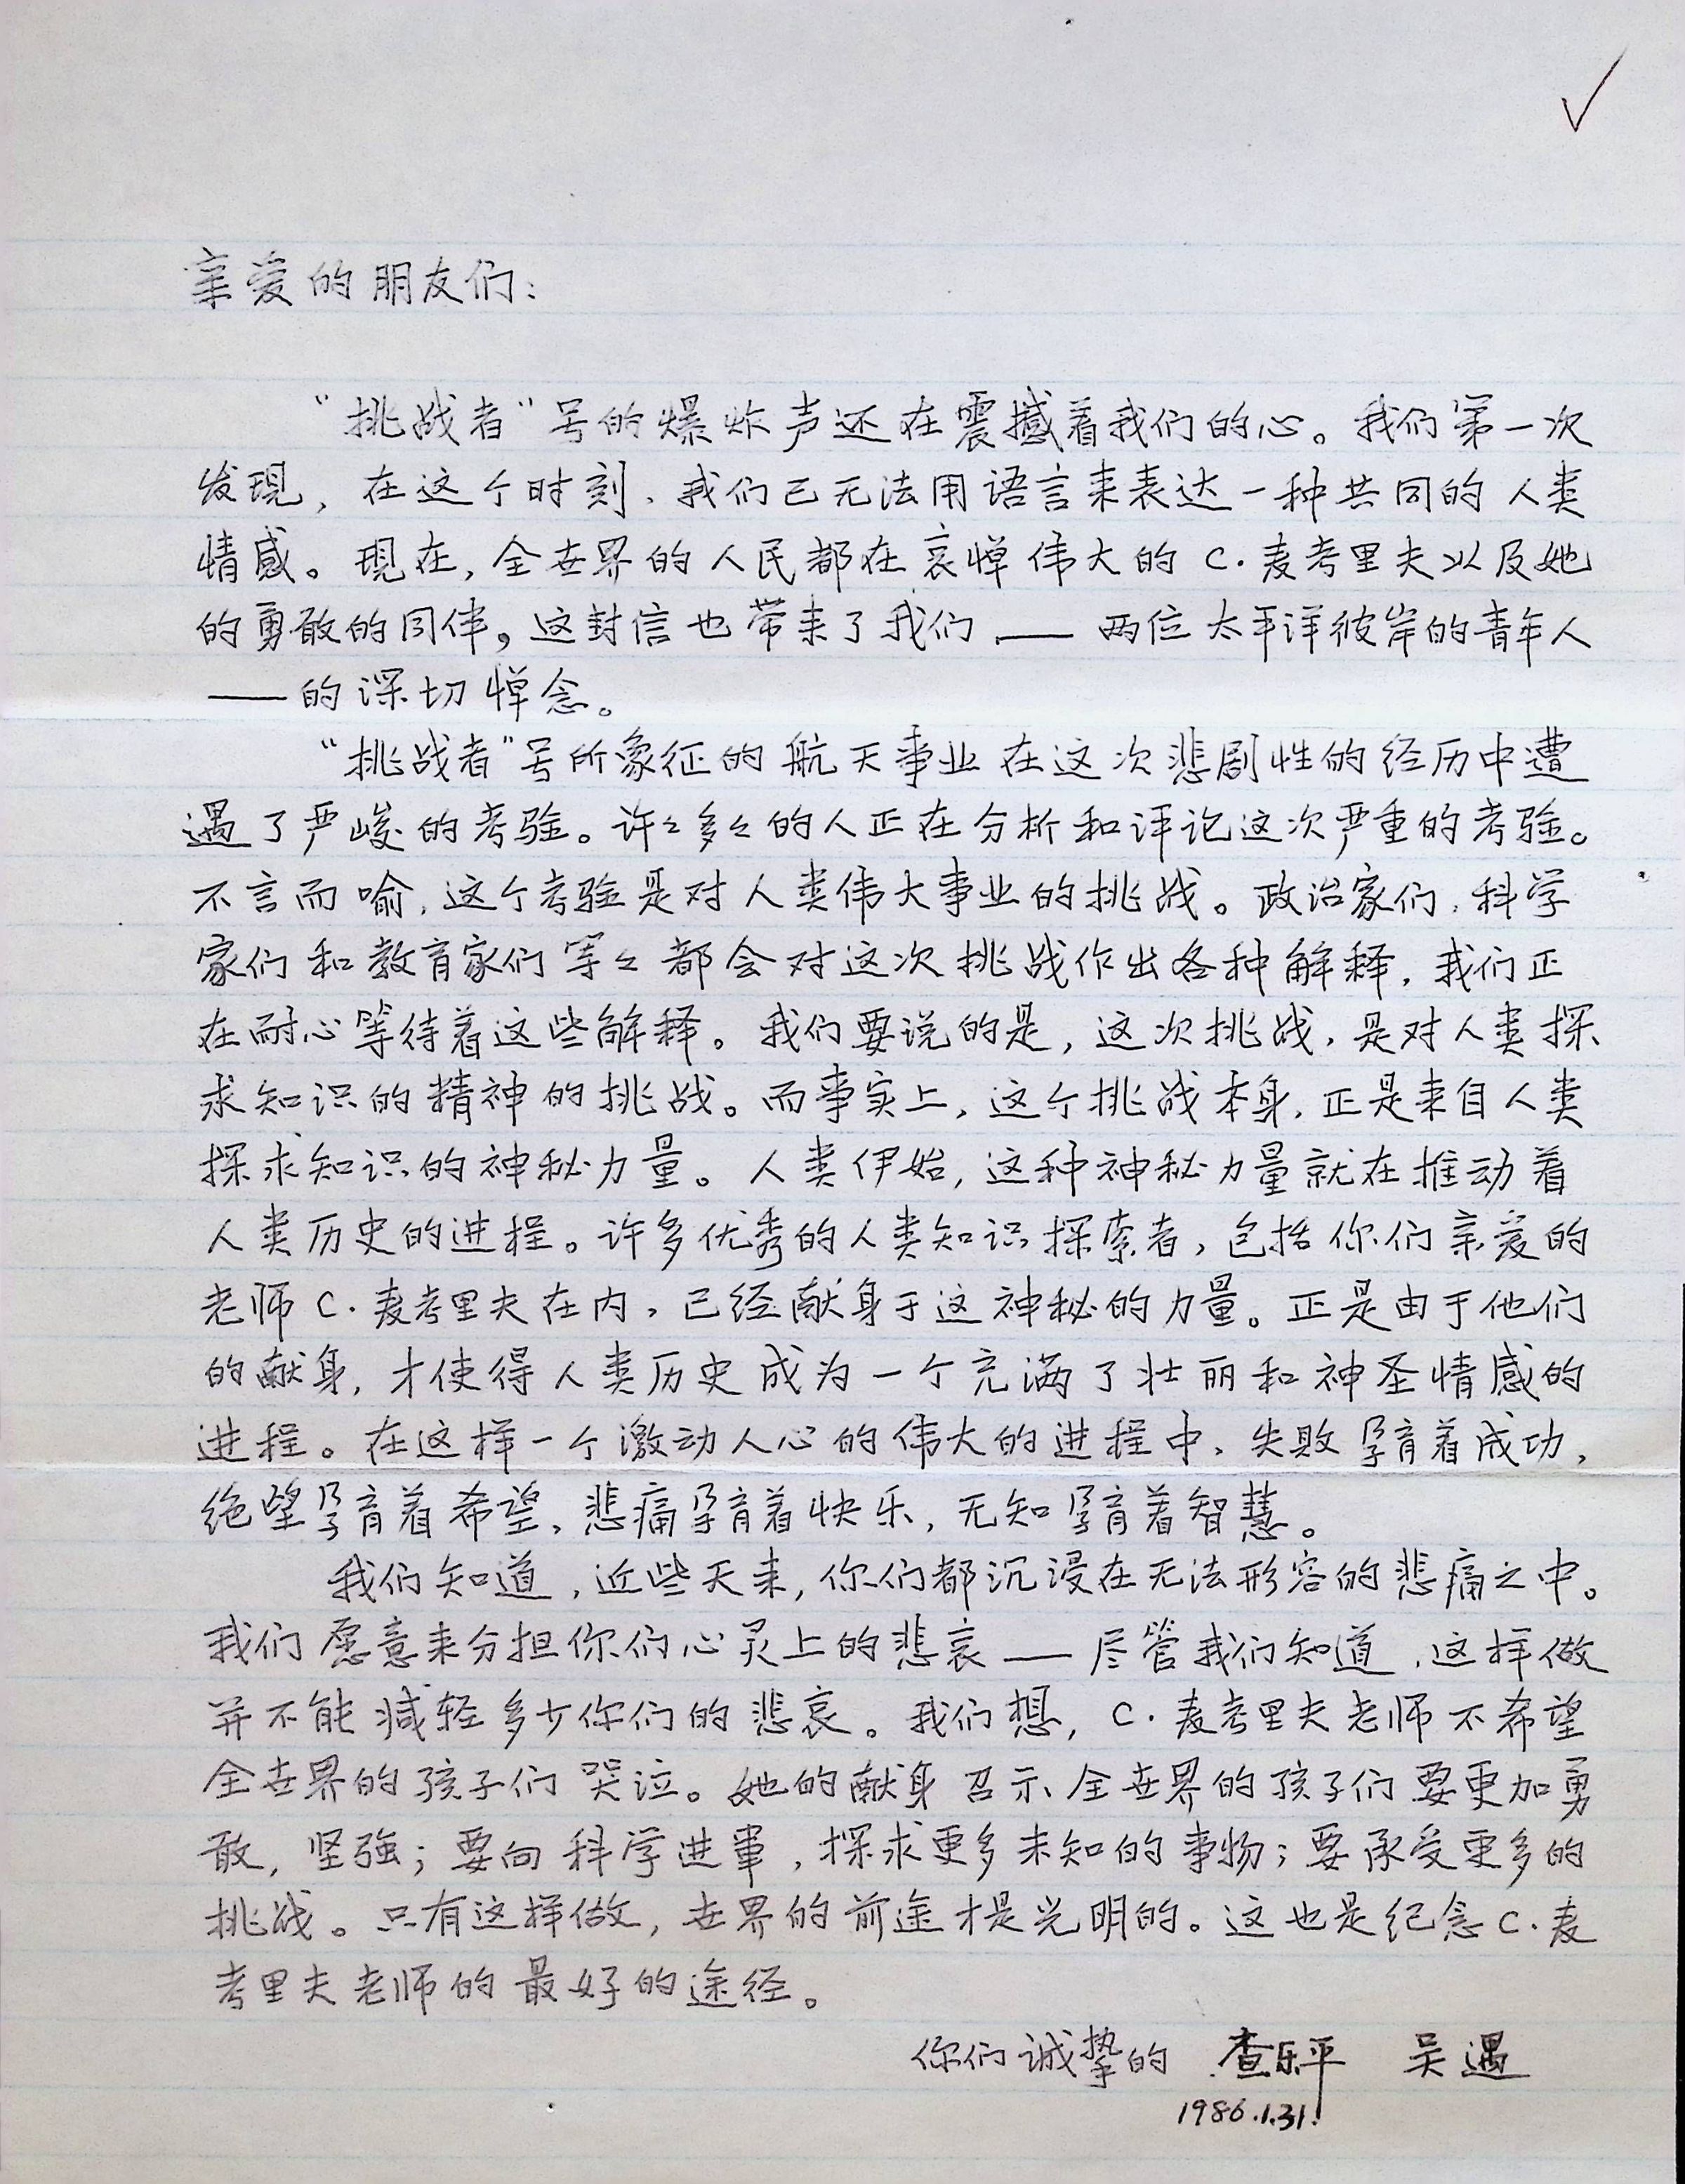 亲爱的朋友们：
“挑战者”号的爆炸声还在震撼着我们的心。我们第一次
发现，在这个时刻，我们已无法用语言来表达一种共同的人类
情感。现在，全世界的人民都在哀悼伟大的C.麦考里夫以及她
的勇敢的同伴。这封信也带来了我们——两位太平洋彼岸的青年人
——的深切悼念。
“挑战者”号所象征的航天事业在这次悲剧性的经历中遭
遇了严峻的考验。许々多々的人正在分析和评论这次严重的考验。
不言而喻，这个考验是对人类伟大事业的挑战。政治家们，科学
家们和教育家们等々都会对这次挑战作出各种解释，我们正
在耐心等待着这些解释。我们要说的是，这次挑战，是对人类探
求知识的精神的挑战。而事实上，这个挑战本身，正是来自人类
探求知识的神秘力量。人类伊始，这种神秘力量就在推动着
人类历史的进程。许多优秀的人类知识探索者，包括你们亲爱的
老师C.麦考里夫在内，已经献身于这神秘的力量。正是由于他们
的献身，才使得人类历史成为一个充满了壮丽和神圣情感的
进程。在这样一个激动人心的伟大的进程中，失败孕育着成功，
绝望孕育着希望，悲痛孕育着快乐，无知孕育着智慧。
我们知道，近些天来，你们都沉浸在无法形容的悲痛之中。
我们愿意来分担你们心灵上的悲哀——尽管我们知道，这样做
并不能减轻多少你们的悲哀。我们想，C.麦考里夫老师不希望
全世界的孩子们哭泣。她的献身召示全世界的孩子们要更加勇
敢，坚强；要向科学进军，探求更多未知的事物；要承受更多的
挑战。只有这样做，世界的前途才是光明的。这也是纪念C.麦
考里夫老师的最好的途径。
你们诚挚的 查乐平 吴遇
1986.1.31.